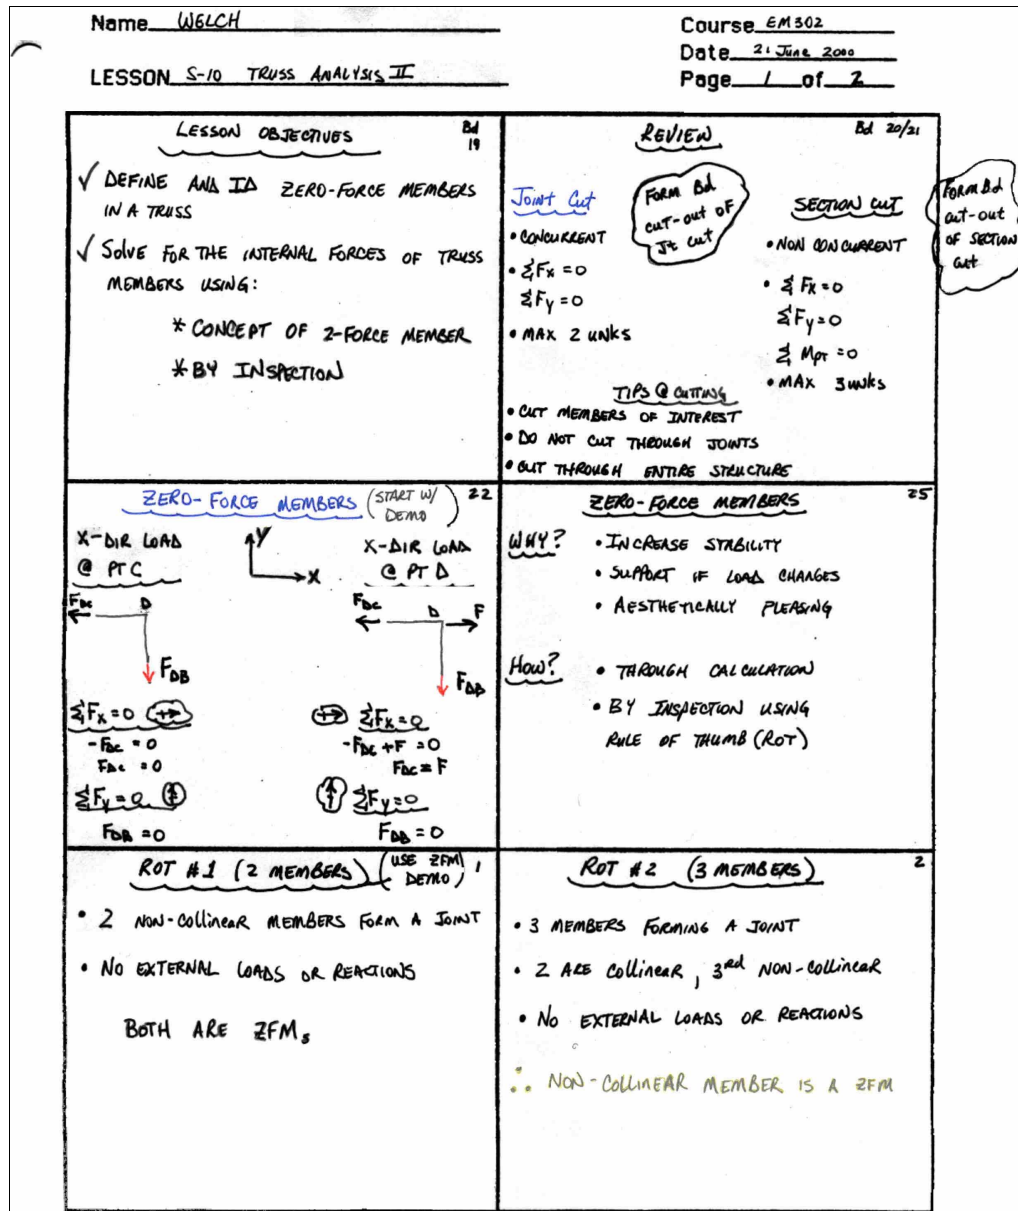 Name WELCH
Course EM302
Date 21 June 2000
LESSON S-10 TRUSS ANALYSIS II
Page 1 of 2
LESSON OBJECTIVES
Bd 19
√ DEFINE AND ID ZERO-FORCE MEMBERS
IN A TRUSS
√ SOLVE FOR THE INTERNAL FORCES OF TRUSS
MEMBERS USING:
* CONCEPT OF 2-FORCE MEMBER
* BY INSPECTION
REVIEW
Bd 20/21
JOINT CUT
• CONCURRENT
• ΣFx = 0
ΣFy = 0
• MAX 2 UNKS
FORM Bd
CUT-OUT OF
Jt CUT
SECTION CUT
• NON CONCURRENT
• ΣFx = 0
ΣFy = 0
Σ MPT = 0
• MAX 3 UNKS
FORM Bd
CUT-OUT
OF SECTION
CUT
TIPS @ CUTTING
• CUT MEMBERS OF INTEREST
• DO NOT CUT THROUGH JOINTS
• CUT THROUGH ENTIRE STRUCTURE
ZERO-FORCE MEMBERS (START W/
DEMO)
22
X-DIR LOAD
@ PT C
Y
X
FDC
D
FDB
ΣFx = 0 +→
-FDC = 0
FDC = 0
ΣFy = 0 ↑
FDB = 0
X-DIR LOAD
@ PT D
FDC
D
F
FDB
+→ ΣFx = 0
-FDC + F = 0
FDC = F
↑ ΣFy = 0
FDB = 0
ZERO-FORCE MEMBERS
25
WHY?
• INCREASE STABILITY
• SUPPORT IF LOAD CHANGES
• AESTHETICALLY PLEASING
HOW?
• THROUGH CALCULATION
• BY INSPECTION USING
RULE OF THUMB (ROT)
ROT #1 (2 MEMBERS) (USE ZFM
DEMO)
1
• 2 NON-COLLINEAR MEMBERS FORM A JOINT
• NO EXTERNAL LOADS OR REACTIONS
BOTH ARE ZFMs
ROT #2 (3 MEMBERS)
2
• 3 MEMBERS FORMING A JOINT
• 2 ARE COLLINEAR, 3rd NON-COLLINEAR
• NO EXTERNAL LOADS OR REACTIONS
∴ NON-COLLINEAR MEMBER IS A ZFM